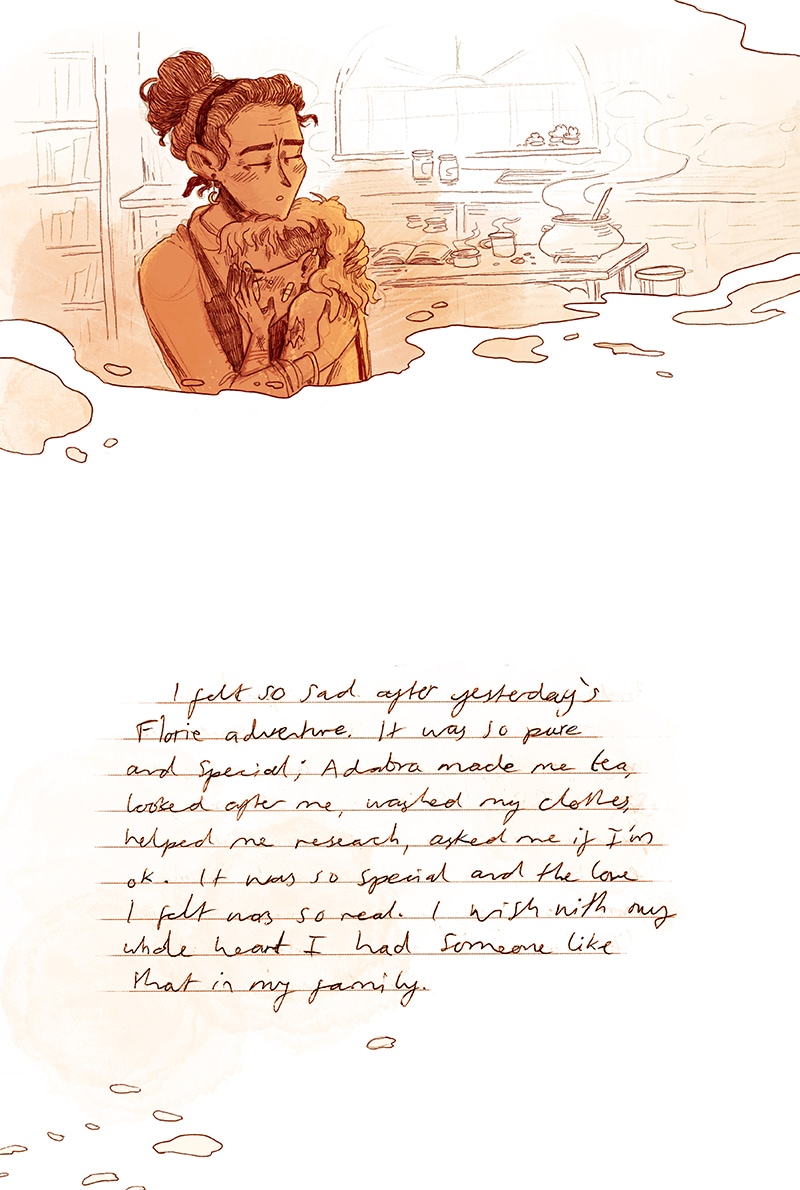 I felt so sad after yesterday's
Florie adventure. It was so pure
and special; Adabra made me tea,
looked after me, washed my clothes,
helped me research, asked me if I'm
ok. It was so special and the love
I felt was so real. I wish with my
whole heart I had someone like
that in my family.